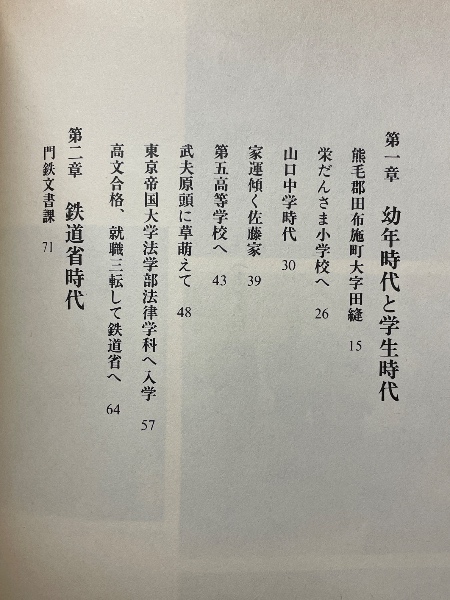 第一章　幼年時代と学生時代
熊毛郡田布施町大字田縫　15
栄だんさま小学校へ　26
山口中学時代　30
家運傾く佐藤家　39
第五高等学校へ　43
武夫原頭に草萌えて　48
東京帝国大学法学部法律学科へ入学　57
高文合格、就職三転して鉄道省へ　64
第二章　鉄道省時代
門鉄文書課　71